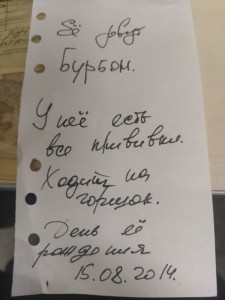 Её зовут
Бурбон.
У неё есть
все прививки.
Ходит на
горшок.
День её
рождения
15.08.2014.